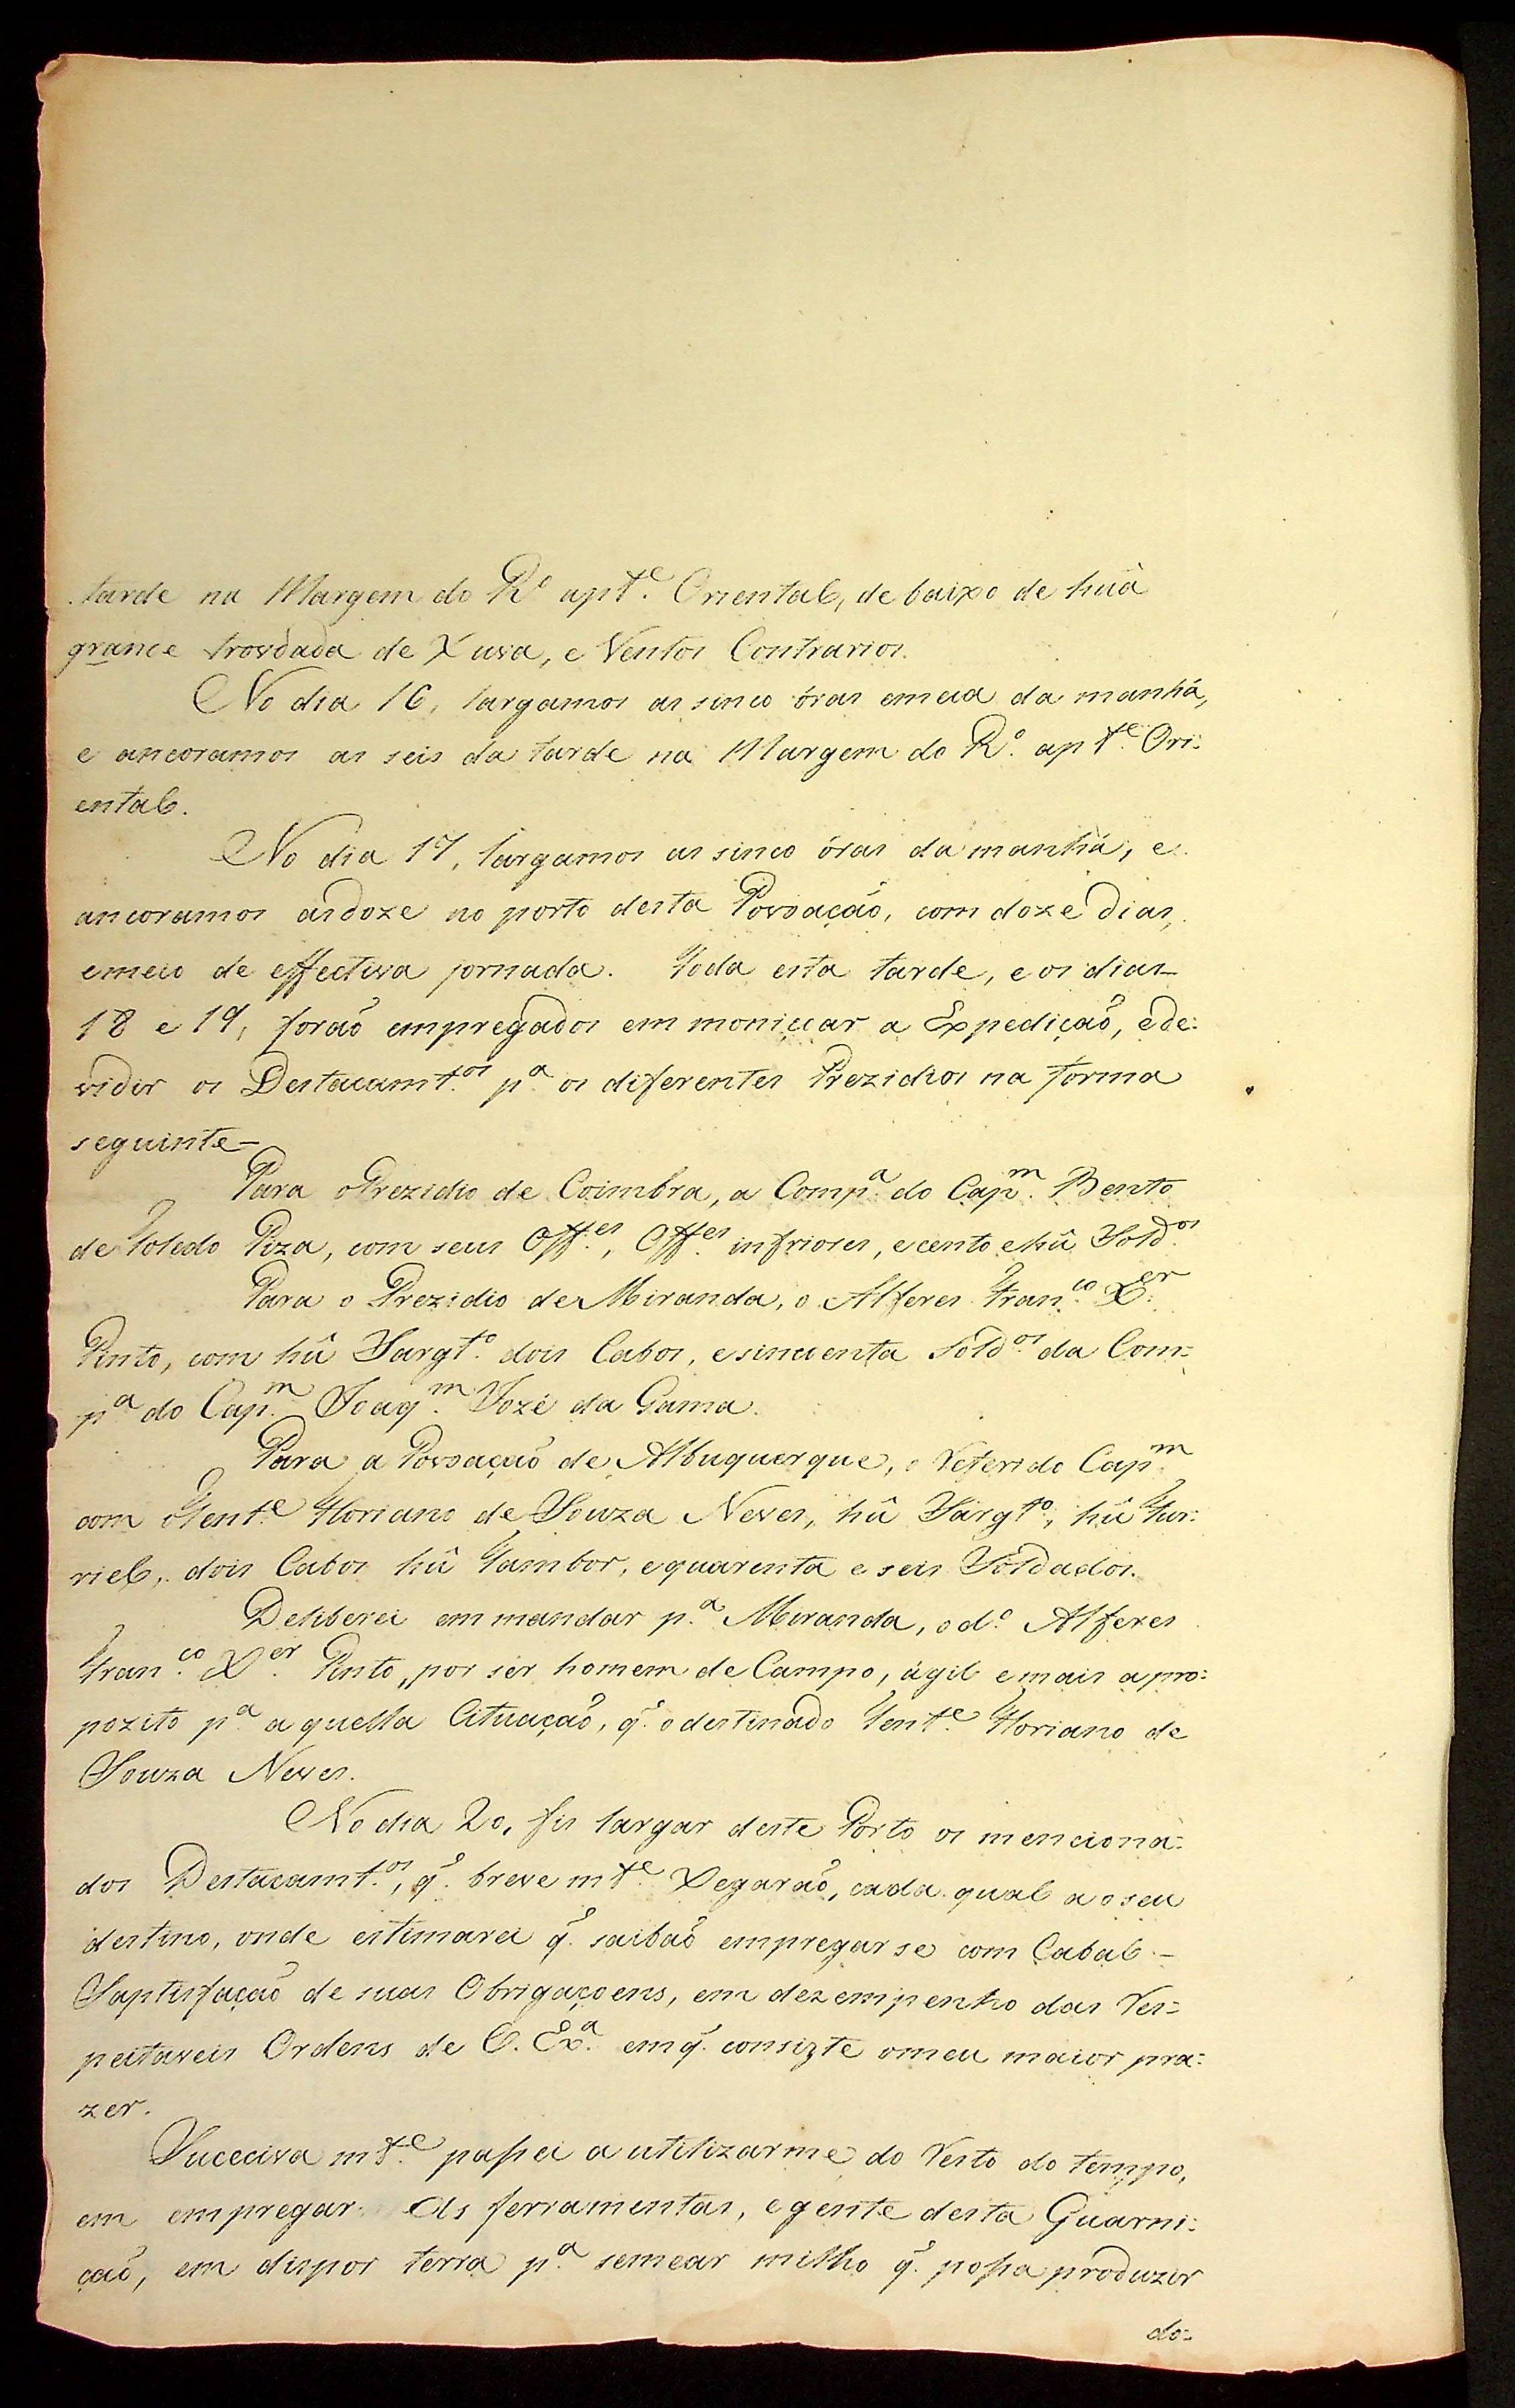 tarde na Margem do R.º ap.te Oriental, de baixo de huã
grance trovdada de Xuva, e Ventos Contrarios.
No dia 16, largamos as sinco óras emeia da manhã,
e ancoramos as seis da tarde na Margem do R.º ap.te Ori:
ental.
No dia 17, largamos as sinco óras da manhã, e
ancoramos asdoze no porto desta Povoação, com doze dias,
emeio de effectiva jornada. Toda esta tarde, e os dias
18 e 19, forão empregados em moniçcar a Expedição, ede:
vidir os Destacamt.os p.a os diferentes Prezidios na forma
seguinte—
Para oPrezidio de Coimbra, a Comp.a do Cap.m Bento
de Toledo Piza, com seus Off.es, Off.es infriores, ecento ehû Sold.os
Para o Prezidio deMiranda, o Alferes Fran.co X.er
Pinto, com hû Sargt.º dois Cabos, esincuenta Sold.os da Com:
p.a do Cap.m Joaq.m Jozé da Gama.
Para a Povoação de Albuquerque, o Referido Cap.m
com oTent.e Floriano de Souza Neves, hû Sargt.º, hû Fur:
riel, dois Cabos hû Tambor, equarenta e seis Soldados.
Deliberei em mandar p.a Miranda, od.º Alferes
Fran.co X.er Pinto, por ser homem de Campo, ágil emais apro:
pozito p.a aquella Cituação, q̃. odestinado Tent.e Floriano de
Souza Neves.
No dia 20, fis largar deste Porto os menciona:
dos Destacamt.os, q̃. breve mt.e Xegarão, cada qual aoseu
destino, onde estimarei q̃. saibão empregarse com Cabal—
Saptisfação de suas Obrigaçoens, em dezempenho das Res:
peitaveis Ordens de V. Ex.a emq̃. consizte omeu maior pra:
zer.
Suceciva mt.e passei a utilizarme do Resto do tempo,
em empregar As ferramentas, egente desta Guarni:
ção, em dispor terra p.a semear milho q̃. possa produzir
do: